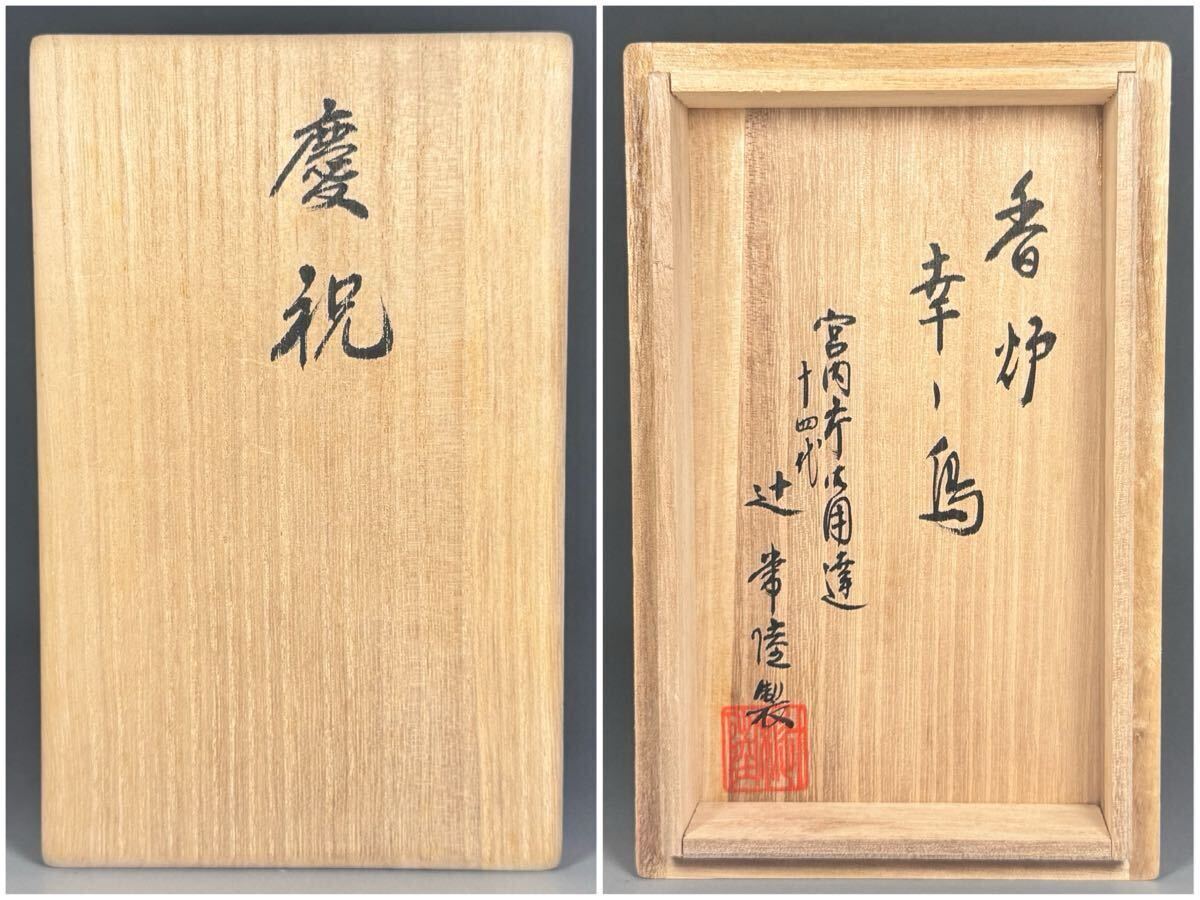 慶祝
香炉
幸 鳥
宮内庁御用達
十四代
辻 常陸製